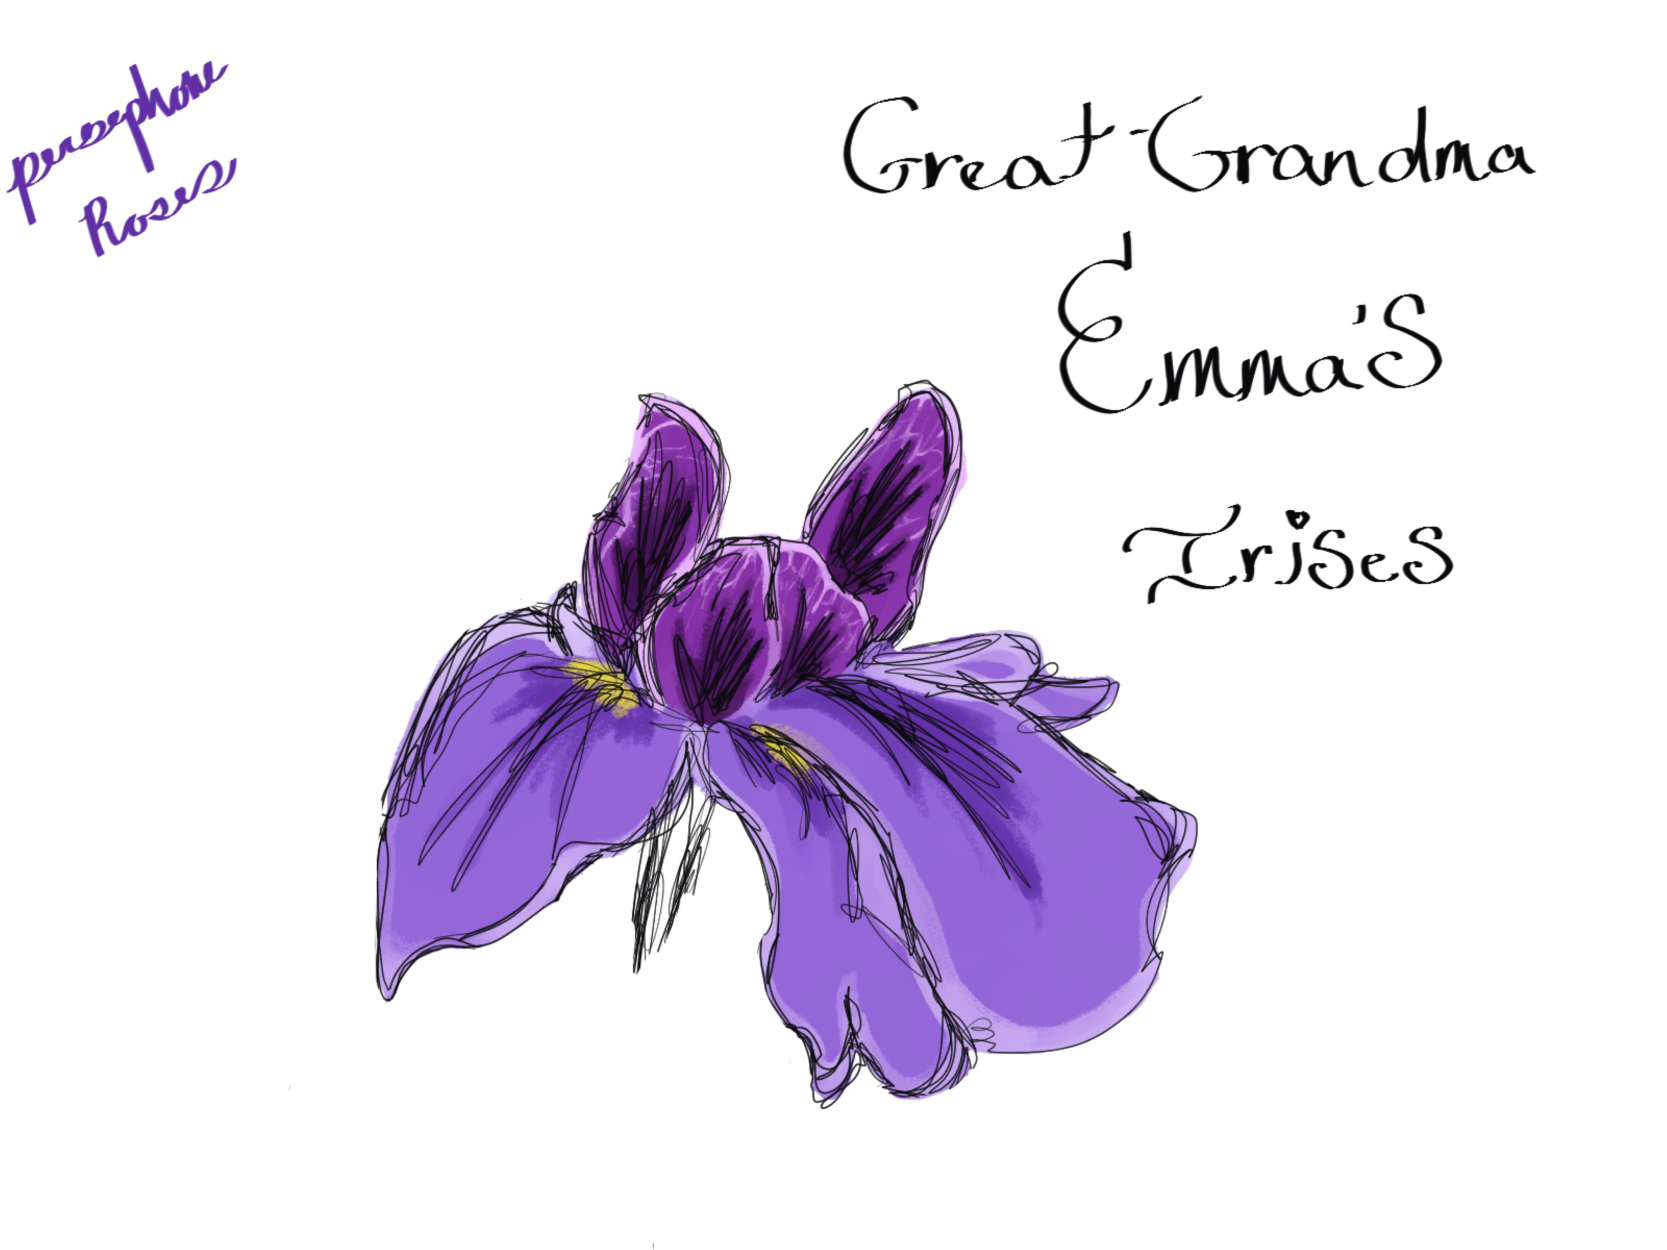 persephone
Roses
Great-Grandma
Emma's
Irises